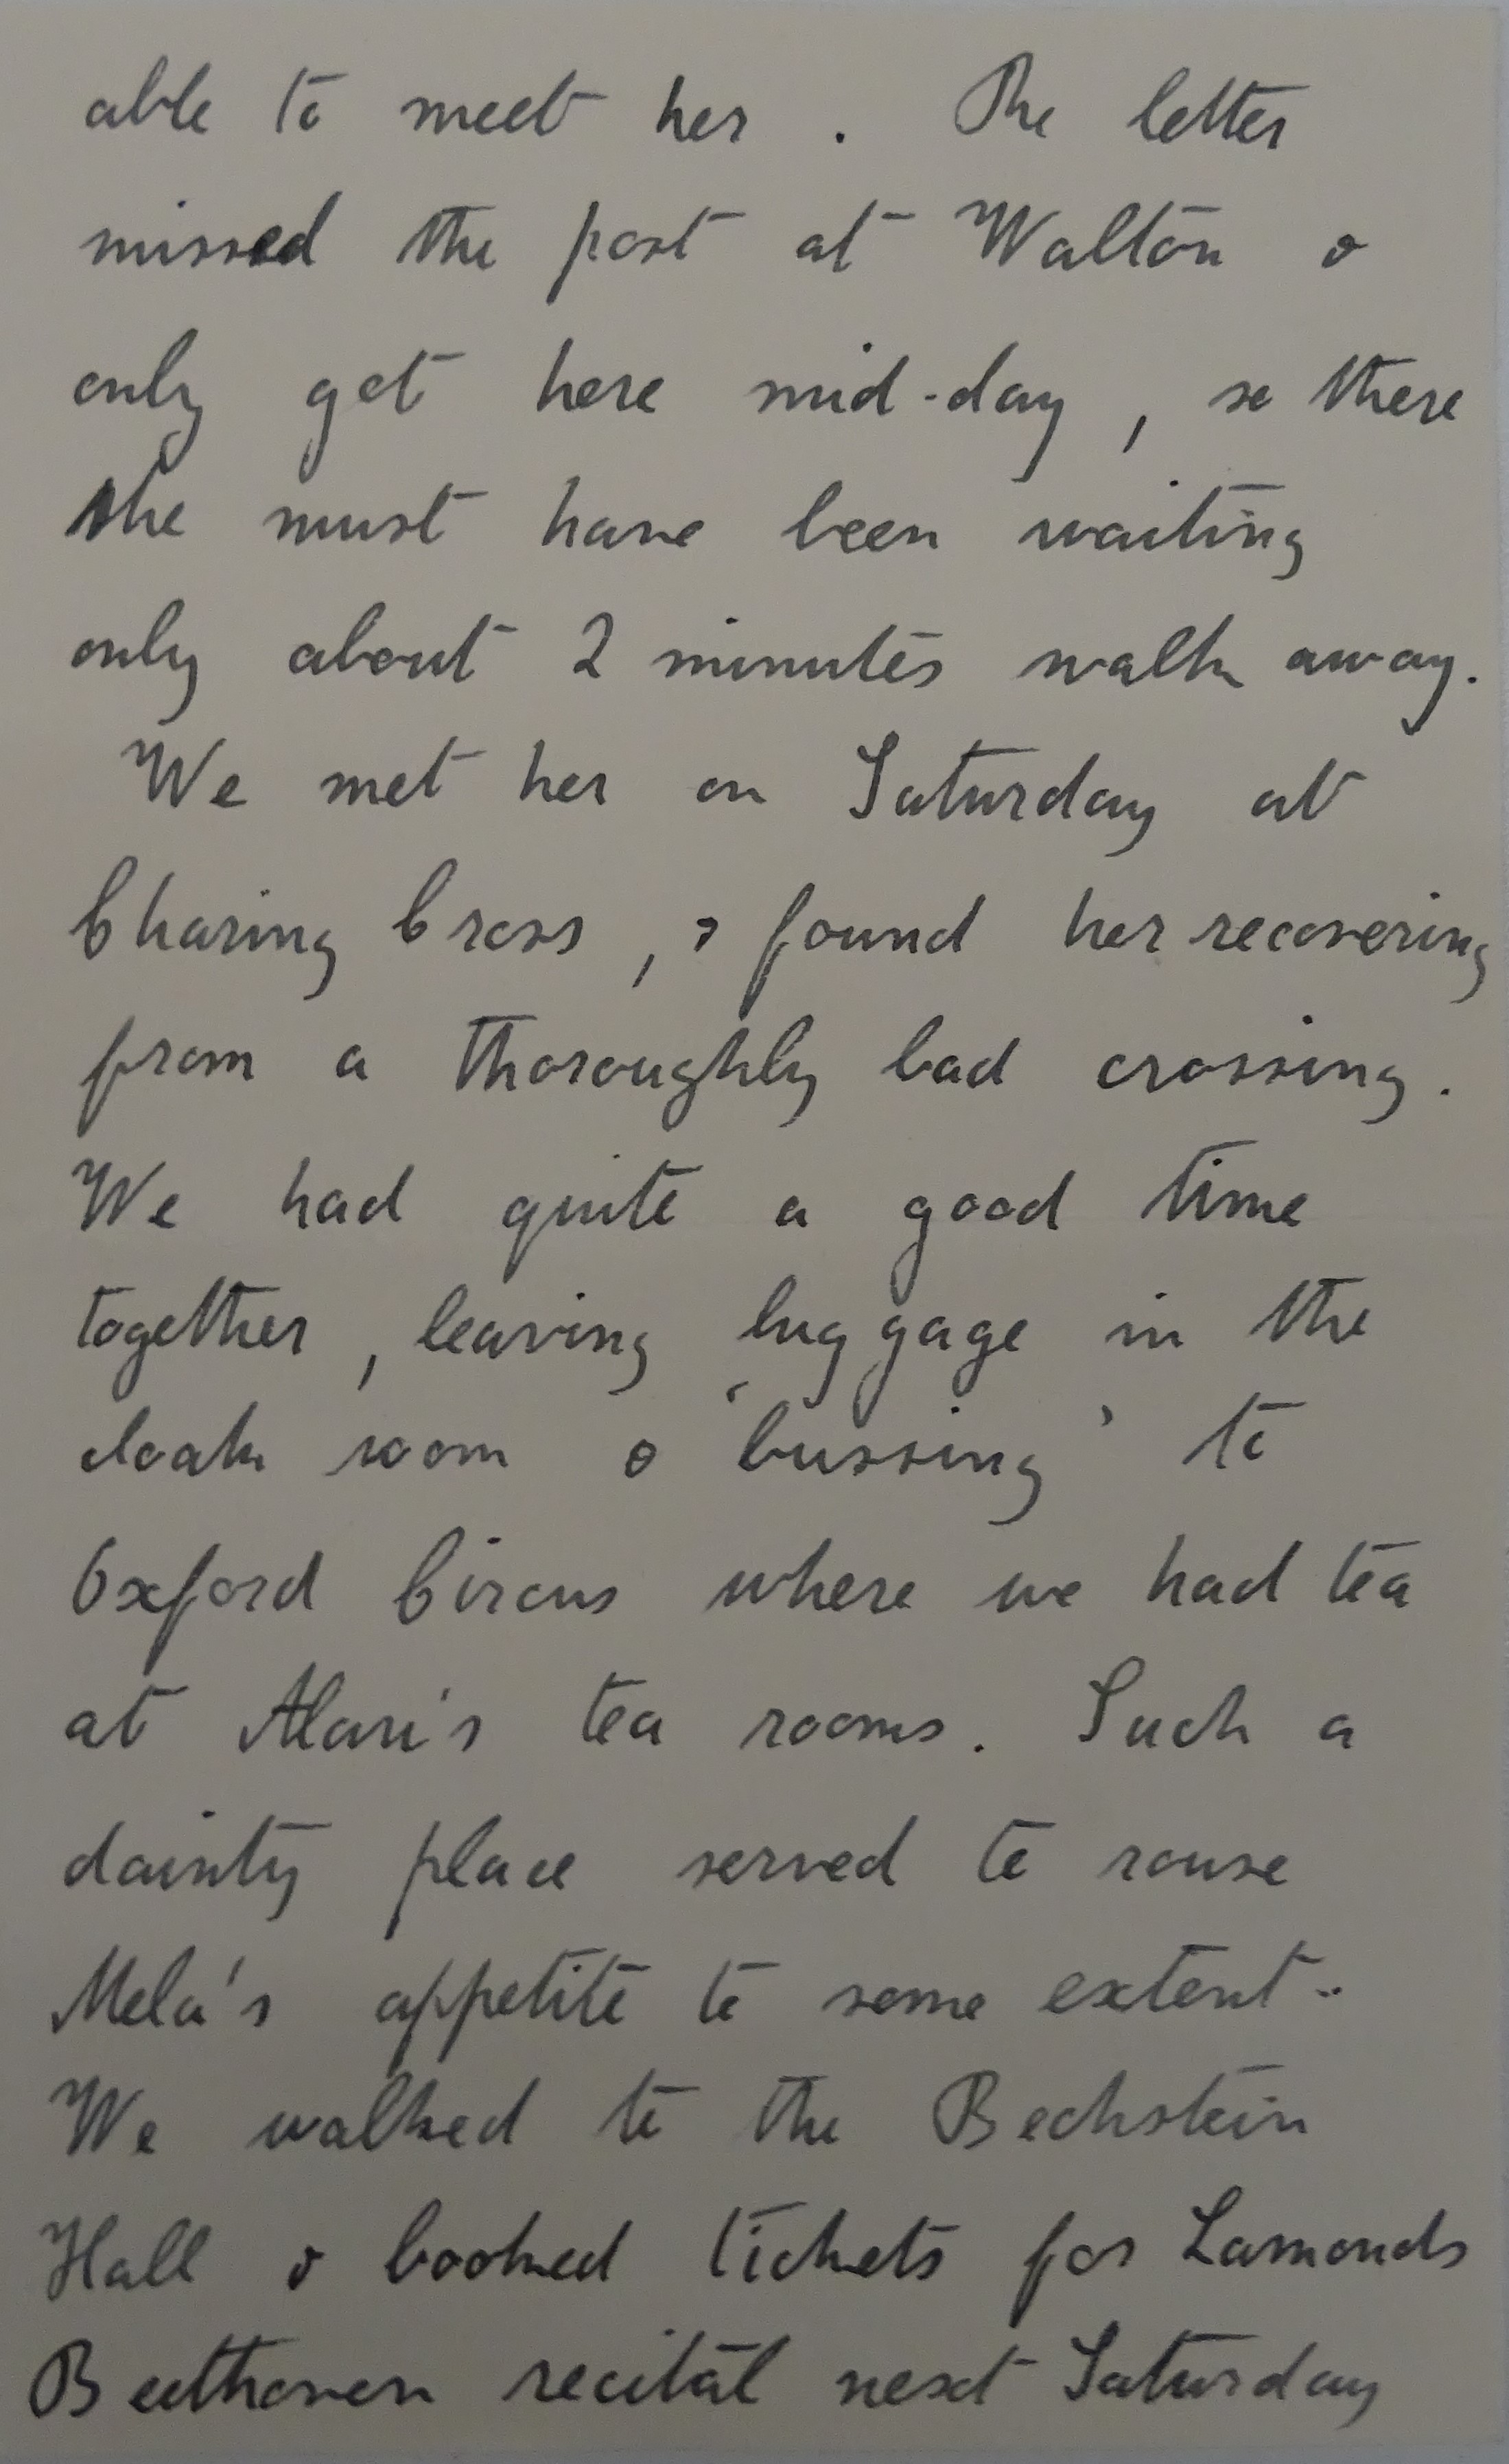 able to meet her. The letter
missed the post at Walton &
only got here mid-day, so there
she must have been waiting
only about 2 minutes walk away.
We met her on Saturday at
Charing Cross, & found her recovering
from a thoroughly bad crossing.
We had quite a good time
together, leaving luggage in the
cloak room & 'bussing' to
Oxford Circus where we had tea
at Alari's tea rooms. Such a
dainty place served to rouse
Mela's appetite to some extent..
We walked to the Bechstein
Hall & booked tickets for Lamonds
Beethoven recital next Saturday